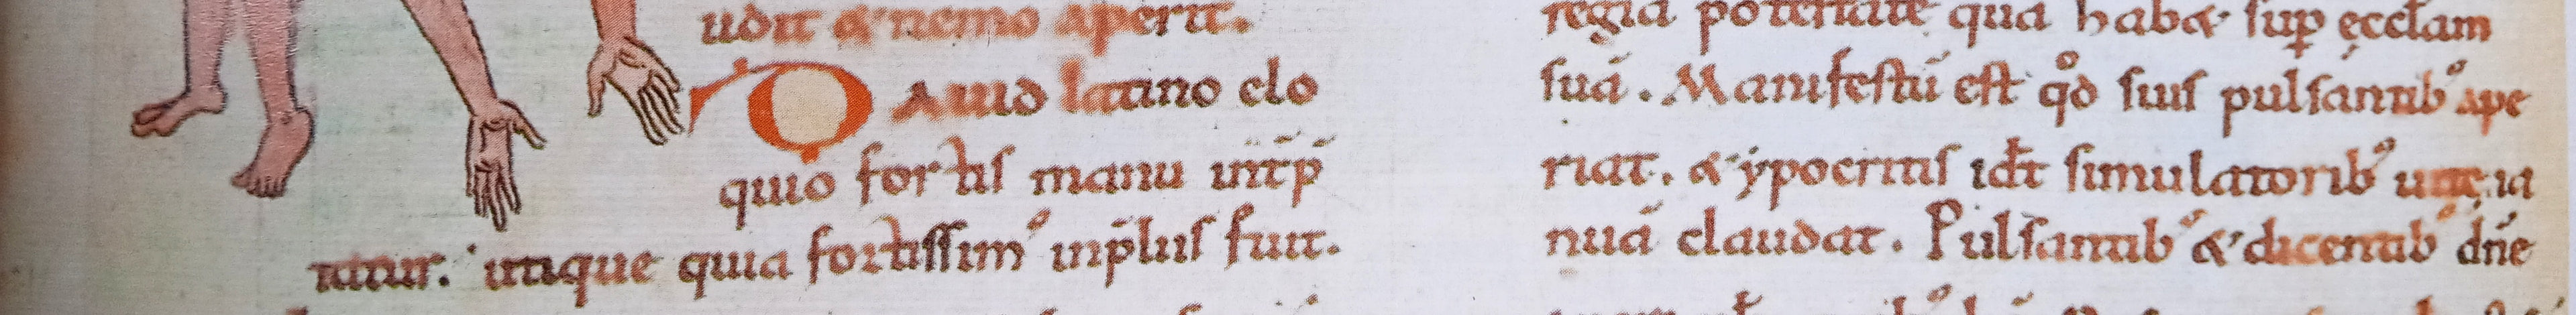 udit & nemo aperit.
DAuid latino elo
quio fortis manu int̄p̄
tatur. utique quia fortissim᷒ inp̄liis fuit.
regia potestate qua hab& sup̱ ęccl̄am
suā. Manifestū est qđ suis pulsantib᷒ ape
riat. & ypocritis id̄t simulatorib᷒ uitę ia
nuā claudat. Pulsantib᷒ & dicentib᷒ dn̄e